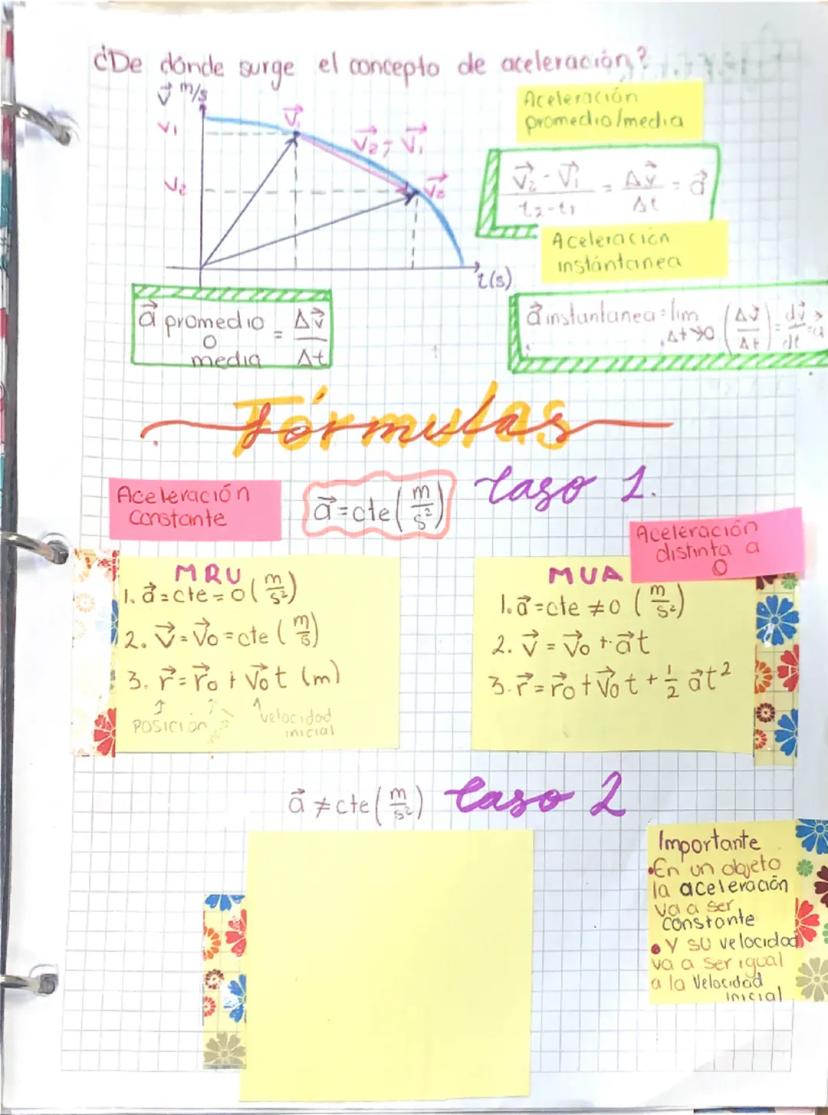 ¿De dónde surge el concepto de aceleración?
v⃗ m/s
v₁
v₂
v⃗₁
v⃗₂ - v⃗₁
v⃗₂
t(s)
Aceleración
promedio/media
(v⃗₂ - v⃗₁)/(t₂-t₁) = Δv⃗/Δt = a⃗
Aceleración
instántanea
a⃗ promedio o media = Δv⃗/Δt
a⃗ instantanea = lim Δt→0 (Δv⃗/Δt) = dv⃗/dt = a⃗
Fórmulas
Aceleración
Constante
a⃗ = cte (m/s²)
Caso 1.
Aceleración
distinta a
0
MRU
1. a⃗ = cte = 0 (m/s²)
2. v⃗ = v⃗₀ = cte (m/s)
3. r⃗ = r⃗₀ + v⃗₀t (m)
↑ ↑
Posición
velocidad
inicial
MUA
1. a⃗ = cte ≠ 0 (m/s²)
2. v⃗ = v⃗₀ + a⃗t
3. r⃗ = r⃗₀ + v⃗₀t + ½ a⃗t²
a⃗ ≠ cte (m/s²)
Caso 2
Importante
•En un objeto
la aceleración
va a ser
constante
• Y su velocidad
va a ser igual
a la velocidad
inicial